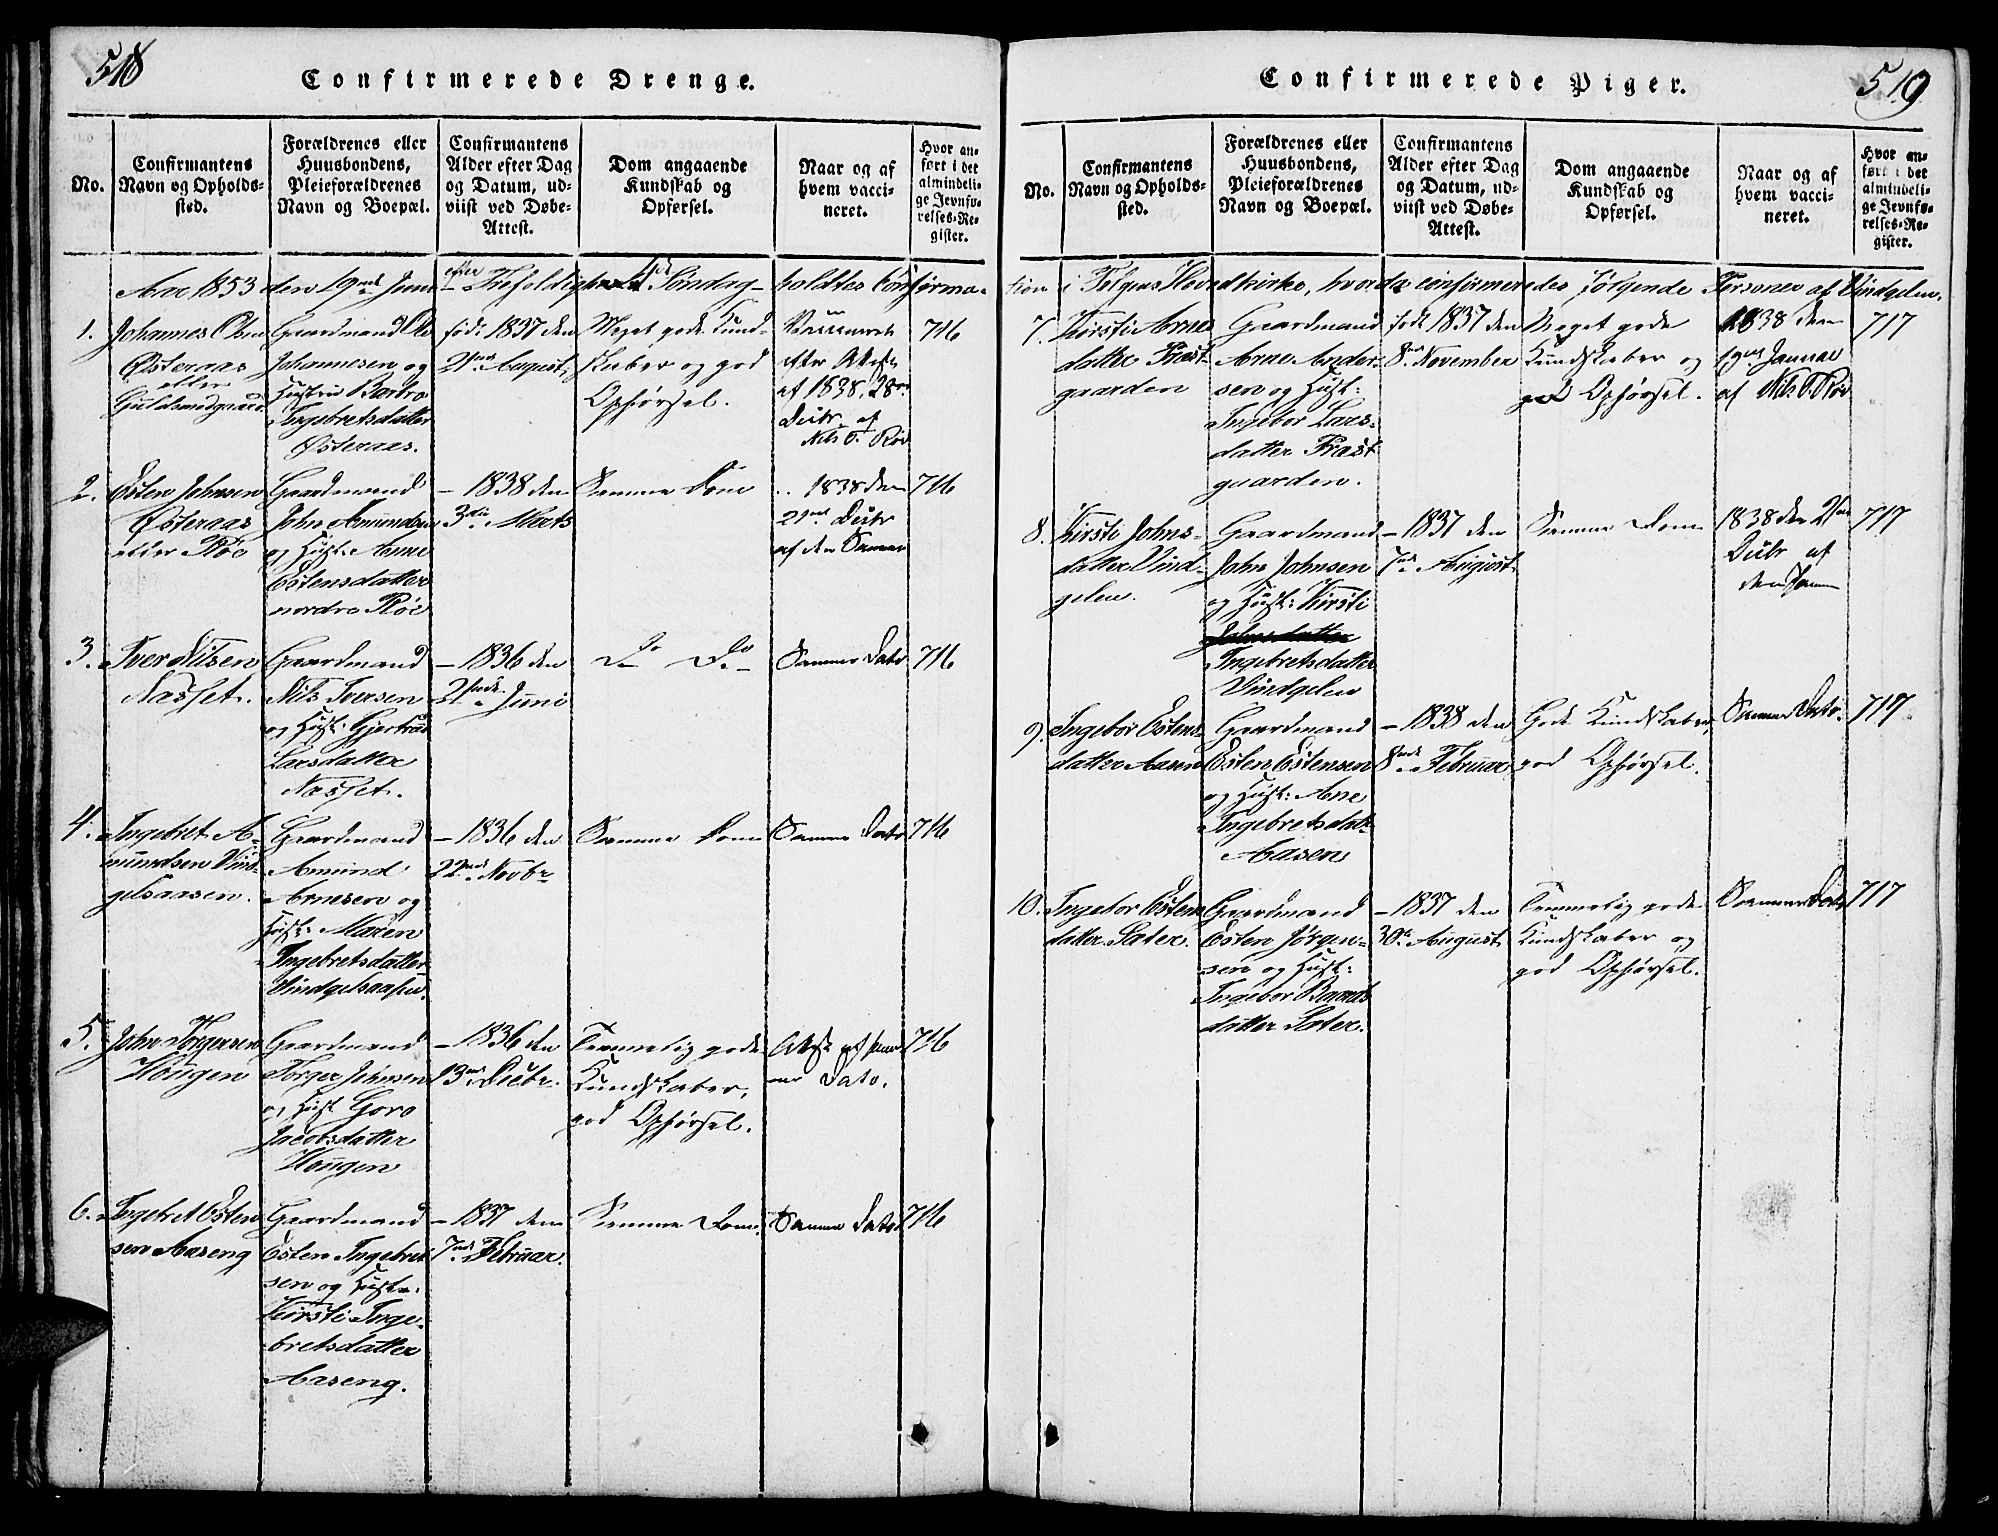 518
Confirmerede Drenge.
No.
Confirmantens
Navn og Opholds-
sted.
Forældrenes eller
Huusbondens,
Pleieforældrenes
Navn og Boepæl.
Confirmantens
Alder efter Dag
og Datum, ud-
viist ved Døbe-
Attest.
Dom angaaende
Kundskab og
Opførsel.
Naar og af
hvem vacci-
neret.
Hvor an-
ført i det
almindeli-
ge Jevnfø-
relses-Re-
gister.
Aar 1853 den 19de Juni efter Trefoldighed Søndag holdtes Confirma-
1.
Johannes Olsen
Østeraas
eller
Guldsmedgaard
Gaardmand Ole
Johannesen og
Hustru Barbro
Ingebretsdatter
Østeraas.
föd: 1837 den
21de August,
Meget gode Kund-
skaber og god
Opførsel.
Vaccineret
efter Attest
af 1838, 28de
Decbr. af
Nils O. Röe
716
2.
Esten Johnsen
Østeraas
eller Röe
Gaardmand
John Amundsen
og Hust: Anne
Estensdatter
nordre Röe
- 1838 den
3die Marts
Samme Dom
1838 den
29de Decbr
af den Samme
716
3.
Iver Nilsen
Næsset.
Gaardmand
Nils Iversen
og Hust: Gjertrud
Larsdatter
Næsset.
- 1836 den
21de Juni
Do Do
Samme Dato
716
4.
Ingebret A-
mundsen Vind-
gelsaasen.
Gaardmand
Amund
Arnesen og
Hust: Maren
Ingebretsdatter
Vindgelsaasen.
- 1836 den
22de Novbr
Samme Dom
Samme Dato
716
5.
John Torgersen
Hougen
Gaardmand
Torger Johnsen
og Hust Goro
Jacobsdatter
Hougen
- 1836 den
13de Decbr.
Temmelig gode
Kundskaber,
god Opførsel.
Attest af sam-
me Dato.
716
6.
Ingebret Esten
sen Aaseng
Gaardmand
Esten Ingebret
sen og Hustr:
Kirsti Inge-
bretsdatter
Aaseng.
- 1837 den
7de Februar.
Samme Dom.
Samme Dato
716
519
Confirmerede Piger.
No.
Confirmantens
Navn og Opholds-
sted.
Forældrenes eller
Huusbondens,
Pleieforældrenes
Navn og Boepæl.
Confirmantens
Alder efter Dag
og Datum, ud-
viist ved Døbe-
Attest.
Dom angaaende
Kundskab og
Opførsel.
Naar og af
hvem vacci-
neret.
Hvor an-
ført i det
almindeli-
ge Jevnfø-
relses-Re-
gister.
tion i Tolgens Hovedkirke, hvorda confirmeredes følgende Personer af Vindgelen.
7.
Kirsti Arne
datter Præst-
gaarden
Gaardmand
Arne Ander-
sen og Hust:
Ingebor Lars-
datter Præst
gaarden.
født 1837 den
8de November
Meget gode
Kundskaber og
god Opførsel.
1838 den
19de Januar
af Nils O. Röe
717
8.
Kirsti Johns-
datter Vind-
gelen.
Gaardmand
John Johnsen
og Hust: Kirsti
Ingebretsdatter
Vindgelen
- 1837 den
7de August
Samme Dom
1838 den 29de
Decbr af
den Samme
717
9.
Ingebor Estens-
datter Aasen
Gaardmand
Esten Estensen
og Hust: Ane
Ingebretsdatt:
Aasen
- 1838 den
8de Februar
Gode Kundskaber,
god Opførsel.
Samme Dato.
717
10.
Ingebor Estens
datter Sæter.
Gaardmand
Esten Jørgen-
sen og Hust:
Ingebor Baards
datter Sæter.
- 1837 den
30te August
Temmelig gode
Kundskaber og
god Opførsel.
Samme Dato
717